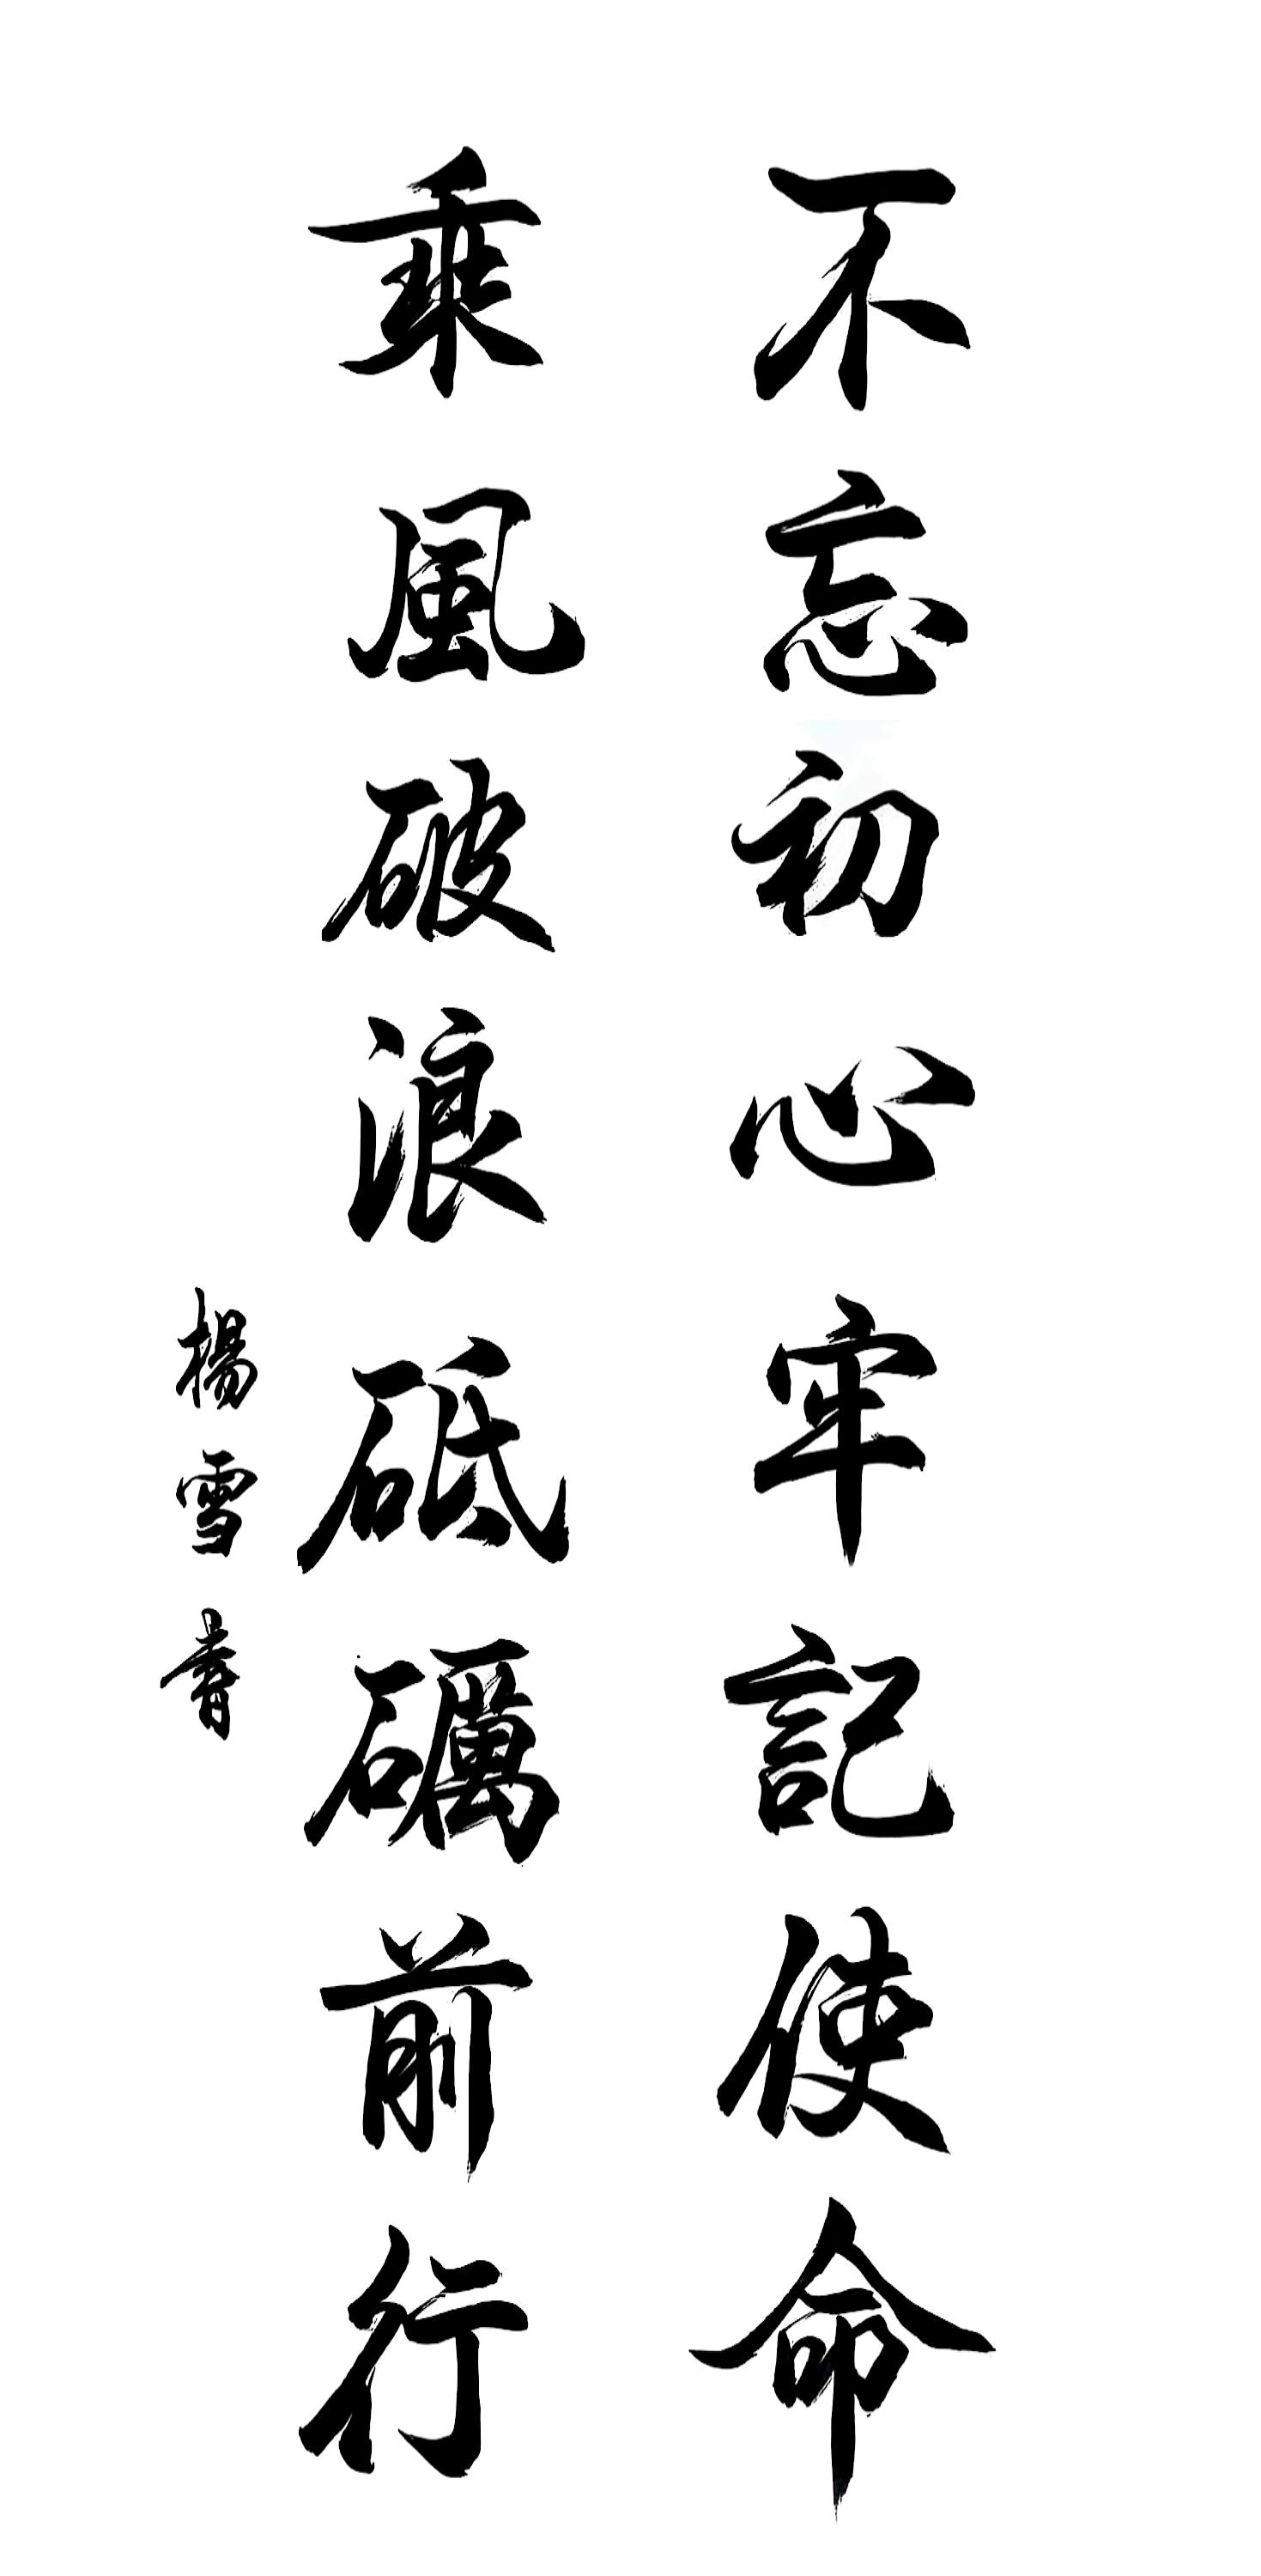 不忘初心牢記使命
乘風破浪砥礪前行
楊雪書